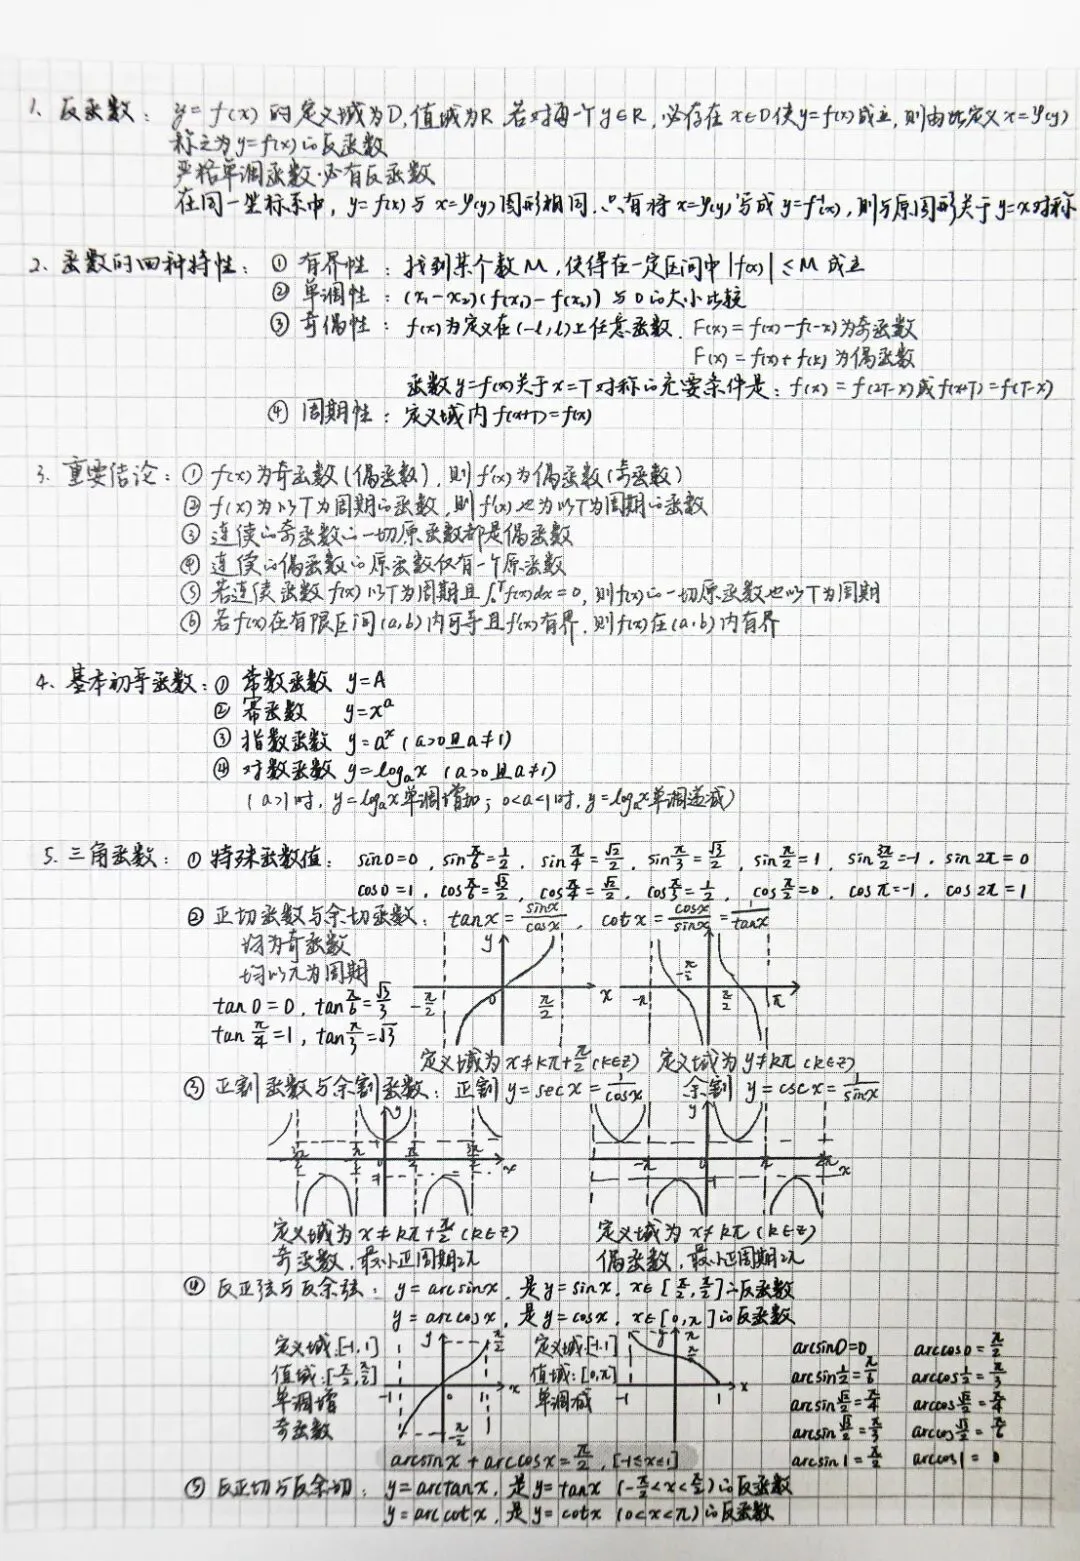 1、反函数: y=f(x)的定义域为D,值域为R,若对每一个y∈R,必存在x∈D使y=f(x)成立,则由此定义x=φ(y)
称之为y=f(x)的反函数
严格单调函数必有反函数
在同一坐标系中,y=f(x)与x=φ(y)图形相同.只有将x=φ(y)写成y=f⁻¹(x),则与原图形关于y=x对称
2、函数的四种特性: ① 有界性: 找到某个数M,使得在一定区间中|f(x)|≤M成立
② 单调性: (x₁-x₂)(f(x₁)-f(x₂))与0的大小比较
③ 奇偶性: f(x)为定义在(-l,l)上任意函数. F(x)=f(x)-f(-x)为奇函数
F(x)=f(x)+f(x)为偶函数
函数y=f(x)关于x=T对称的充要条件是: f(x)=f(2T-x)或f(x+T)=f(T-x)
④ 周期性: 定义域内f(x+T)=f(x)
3、重要结论: ① f(x)为奇函数(偶函数),则f'(x)为偶函数(奇函数)
② f(x)为以T为周期的函数,则f'(x)也为以T为周期的函数
③ 连续的奇函数的一切原函数都是偶函数
④ 连续的偶函数的原函数仅有一个原函数
⑤ 若连续函数f(x)以T为周期且∫₀ᵀf(x)dx=0,则f(x)的一切原函数也以T为周期
⑥ 若f(x)在有限区间(a,b)内可导且f'(x)有界,则f(x)在(a,b)内有界
4、基本初等函数: ① 常数函数 y=A
② 幂函数 y=xᵃ
③ 指数函数 y=aˣ (a>0且a≠1)
④ 对数函数 y=logₐx (a>0且a≠1)
(a>1时,y=logₐx单调增加;0<a<1时,y=logₐx单调递减)
5、三角函数: ① 特殊函数值: sin0=0, sinπ/6=1/2, sinπ/4=√2/2, sinπ/3=√3/2, sinπ/2=1, sin3π/2=-1, sin2π=0
cos0=1, cosπ/6=√3/2, cosπ/4=√2/2, cosπ/3=1/2, cosπ/2=0, cosπ=-1, cos2π=1
② 正切函数与余切函数: tanx=sinx/cosx, cotx=cosx/sinx=1/tanx
均为奇函数
均以π为周期
tan0=0, tanπ/6=√3/3
tanπ/4=1, tanπ/3=√3
y 0 -π/2 π/2 x
-π -π/2 π/2 π
定义域为x≠kπ+π/2(k∈z) 定义域为y≠kπ(k∈z)
③ 正割函数与余割函数: 正割y=secx=1/cosx 余割 y=cscx=1/sinx
y 0 x
y -π 0 π 2π x -1
定义域为x≠kπ+π/2(k∈z) 定义域为x≠kπ(k∈z)
奇函数,最小正周期2π 偶函数,最小正周期2π
④ 反正弦与反余弦: y=arcsinx,是y=sinx, x∈[π/2,π/2]的反函数
y=arccosx,是y=cosx, x∈[0,π]的反函数
定义域:[-1,1] y π/2 定义域:[-1,1] y π arcsin0=0 arccos0=π/2
值域:[-π/2,π/2] -1 0 1 x 值域:[0,π] -1 1 x arcsin1/2=π/6 arccos1/2=π/3
单调增 单调减 arcsin√2/2=π/4 arccos√2/2=π/4
奇函数 -π/2 arcsin√3/2=π/3 arccos√3/2=π/6
arcsinx+arccosx=π/2, [-1≤x≤1] arcsin1=π/2 arccos1=0
⑤ 反正切与反余切: y=arctanx,是y=tanx (-π/2<x<π/2)的反函数
y=arccotx,是y=cotx (0<x<π)的反函数